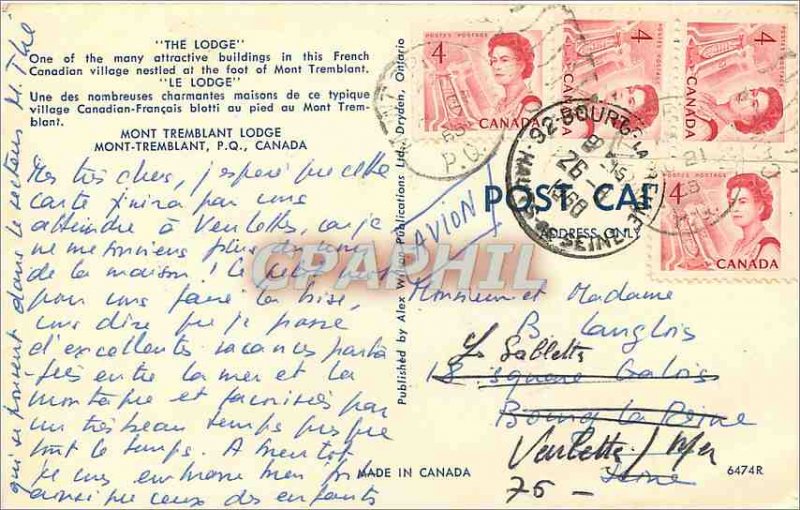 "THE LODGE"
One of the many attractive buildings in this French
Canadian village nestled at the foot of Mont Tremblant.
"LE LODGE"
Une des nombreuses charmantes maisons de ce typique
village Canadian-Français blotti au pied au Mont Trem-
blant.
MONT TREMBLANT LODGE
MONT-TREMBLANT, P.Q., CANADA
Mes très chers, j'espère que cette
carte finira par vous
atteindre à Veulettes, car je
ne me souviens plus du nom
de la maison! Ce petit mot
pour vous faire la bise,
vous dire que je passe
d'excellentes vacances parta-
gées entre la mer et la
montagne et favorisées par
un très beau temps presque
tout le temps. A bientôt
je vous embrasse bien fort
ainsi que ceux des enfants
qui se trouvent dans le secteur. M. Thé
Published by Alex Wilson Publications Ltd., Dryden, Ontario
POSTES POSTAGE
4
CANADA
POSTES POSTAGE
4
CANADA
POSTES POSTAGE
4
CANADA
4
CANADA
P.Q.
92-BOURG-LA-REINE
26-
1968
HAUTS DE SEINE
POST CAR
ADDRESS ONLY
AVION
CPAPHIL
Monsieur et Madame
B. Langlois
Les Sablettes
18 square Galois
Bourg la Reine
Veulettes / Mer
Seine
76 -
MADE IN CANADA
6474R